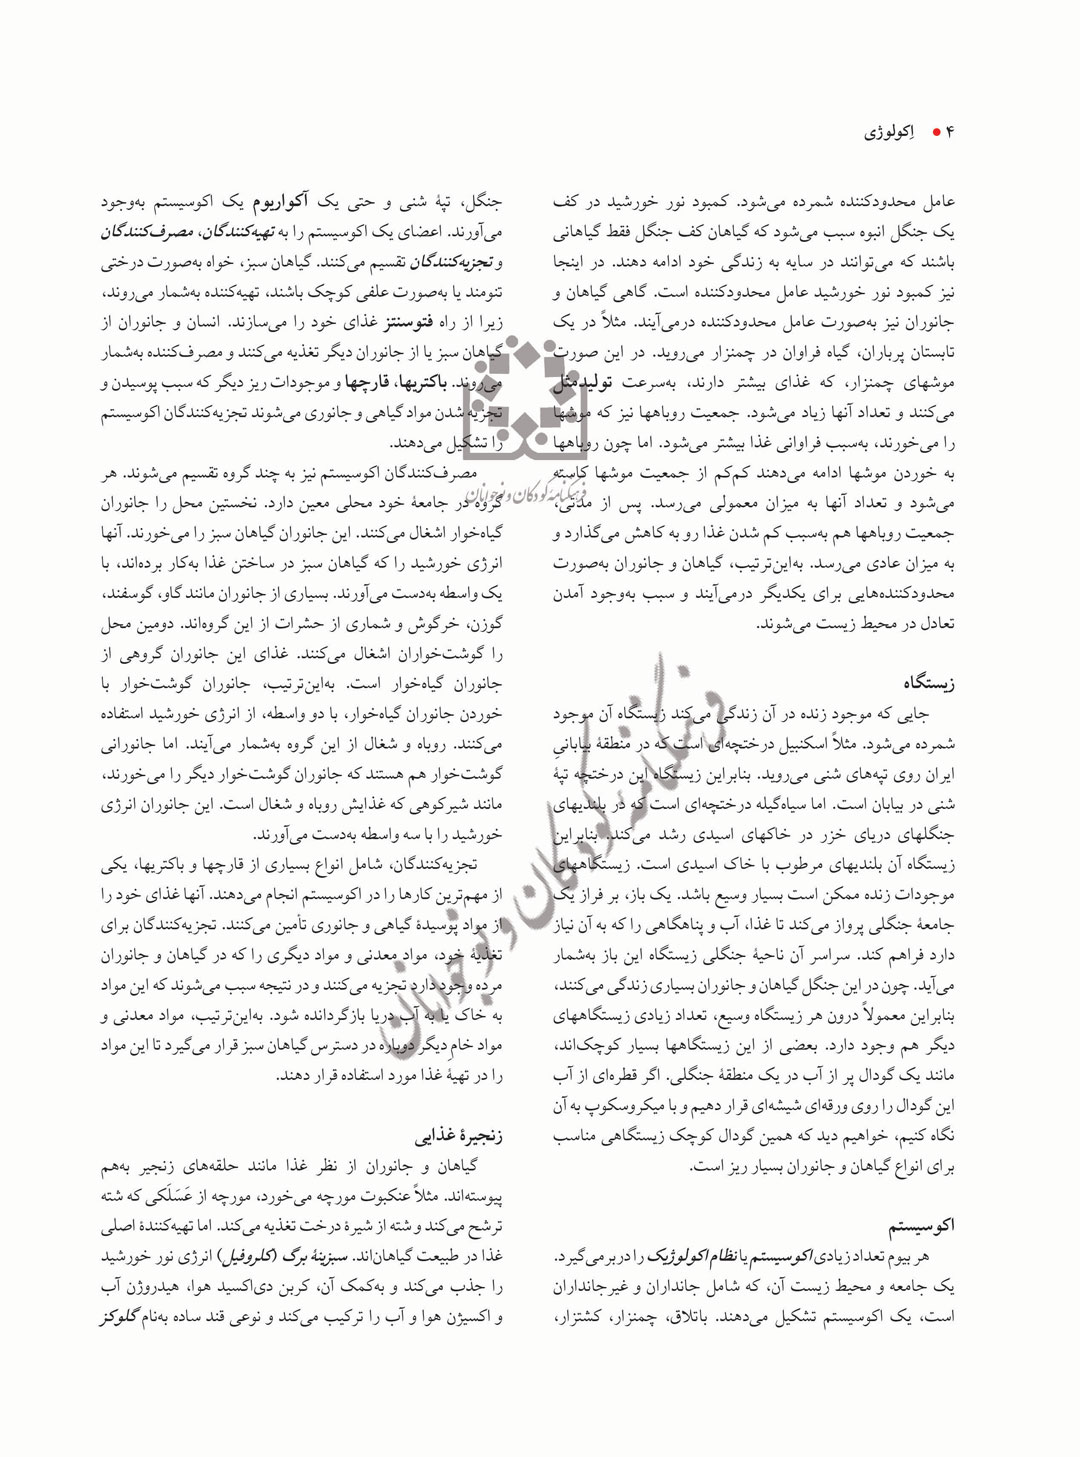 ۴ • اِکولوژی
عامل محدودکننده شمرده می‌شود. کمبود نور خورشید در کف
یک جنگل انبوه سبب می‌شود که گیاهان کف جنگل فقط گیاهانی
باشند که می‌توانند در سایه به زندگی خود ادامه دهند. در اینجا
نیز کمبود نور خورشید عامل محدودکننده است. گاهی گیاهان و
جانوران نیز به‌صورت عامل محدودکننده درمی‌آیند. مثلاً در یک
تابستان پرباران، گیاه فراوان در چمنزار می‌روید. در این صورت
موشهای چمنزار، که غذای بیشتر دارند، به‌سرعت تولیدمثل
می‌کنند و تعداد آنها زیاد می‌شود. جمعیت روباهها نیز که موشها
را می‌خورند، به‌سبب فراوانی غذا بیشتر می‌شود. اما چون روباهها
به خوردن موشها ادامه می‌دهند کم‌کم از جمعیت موشها کاسته
می‌شود و تعداد آنها به میزان معمولی می‌رسد. پس از مدتی،
جمعیت روباهها هم به‌سبب کم شدن غذا رو به کاهش می‌گذارد و
به میزان عادی می‌رسد. به‌این‌ترتیب، گیاهان و جانوران به‌صورت
محدودکننده‌هایی برای یکدیگر درمی‌آیند و سبب به‌وجود آمدن
تعادل در محیط زیست می‌شوند.
زیستگاه
جایی که موجود زنده در آن زندگی می‌کند زیستگاه آن موجود
شمرده می‌شود. مثلاً اسکنبیل درختچه‌ای است که در منطقهٔ بیابانیِ
ایران روی تپه‌های شنی می‌روید. بنابراین زیستگاه این درختچه تپهٔ
شنی در بیابان است. اما سیاه‌گیله درختچه‌ای است که در بلندیهای
جنگلهای دریای خزر در خاکهای اسیدی رشد می‌کند. بنابراین
زیستگاه آن بلندیهای مرطوب با خاک اسیدی است. زیستگاههای
موجودات زنده ممکن است بسیار وسیع باشد. یک باز، بر فراز یک
جامعهٔ جنگلی پرواز می‌کند تا غذا، آب و پناهگاهی را که به آن نیاز
دارد فراهم کند. سراسر آن ناحیهٔ جنگلی زیستگاه این باز به‌شمار
می‌آید. چون در این جنگل گیاهان و جانوران بسیاری زندگی می‌کنند،
بنابراین معمولاً درون هر زیستگاه وسیع، تعداد زیادی زیستگاههای
دیگر هم وجود دارد. بعضی از این زیستگاهها بسیار کوچک‌اند،
مانند یک گودال پر از آب در یک منطقهٔ جنگلی. اگر قطره‌ای از آب
این گودال را روی ورقه‌ای شیشه‌ای قرار دهیم و با میکروسکوپ به آن
نگاه کنیم، خواهیم دید که همین گودال کوچک زیستگاهی مناسب
برای انواع گیاهان و جانوران بسیار ریز است.
اکوسیستم
هر بیوم تعداد زیادی اکوسیستم یا نظام اکولوژیک را دربر می‌گیرد.
یک جامعه و محیط زیست آن، که شامل جانداران و غیرجانداران
است، یک اکوسیستم تشکیل می‌دهند. باتلاق، چمنزار، کشتزار،
جنگل، تپهٔ شنی و حتی یک آکواریوم یک اکوسیستم به‌وجود
می‌آورند. اعضای یک اکوسیستم را به تهیه‌کنندگان، مصرف‌کنندگان
و تجزیه‌کنندگان تقسیم می‌کنند. گیاهان سبز، خواه به‌صورت درختی
تنومند یا به‌صورت علفی کوچک باشند، تهیه‌کننده به‌شمار می‌روند،
زیرا از راه فتوسنتز غذای خود را می‌سازند. انسان و جانوران از
گیاهان سبز یا از جانوران دیگر تغذیه می‌کنند و مصرف‌کننده به‌شمار
می‌روند. باکتریها، قارچها و موجودات ریز دیگر که سبب پوسیدن و
تجزیه شدن مواد گیاهی و جانوری می‌شوند تجزیه‌کنندگان اکوسیستم
را تشکیل می‌دهند.
مصرف‌کنندگان اکوسیستم نیز به چند گروه تقسیم می‌شوند. هر
گروه در جامعهٔ خود محلی معین دارد. نخستین محل را جانوران
گیاه‌خوار اشغال می‌کنند. این جانوران گیاهان سبز را می‌خورند. آنها
انرژی خورشید را که گیاهان سبز در ساختن غذا به‌کار برده‌اند، با
یک واسطه به‌دست می‌آورند. بسیاری از جانوران مانند گاو، گوسفند،
گوزن، خرگوش و شماری از حشرات از این گروه‌اند. دومین محل
را گوشت‌خواران اشغال می‌کنند. غذای این جانوران گروهی از
جانوران گیاه‌خوار است. به‌این‌ترتیب، جانوران گوشت‌خوار با
خوردن جانوران گیاه‌خوار، با دو واسطه، از انرژی خورشید استفاده
می‌کنند. روباه و شغال از این گروه به‌شمار می‌آیند. اما جانورانی
گوشت‌خوار هم هستند که جانوران گوشت‌خوار دیگر را می‌خورند،
مانند شیرکوهی که غذایش روباه و شغال است. این جانوران انرژی
خورشید را با سه واسطه به‌دست می‌آورند.
تجزیه‌کنندگان، شامل انواع بسیاری از قارچها و باکتریها، یکی
از مهم‌ترین کارها را در اکوسیستم انجام می‌دهند. آنها غذای خود را
از مواد پوسیدهٔ گیاهی و جانوری تأمین می‌کنند. تجزیه‌کنندگان برای
تغذیهٔ خود، مواد معدنی و مواد دیگری را که در گیاهان و جانوران
مرده وجود دارد تجزیه می‌کنند و در نتیجه سبب می‌شوند که این مواد
به خاک یا به آب دریا بازگردانده شود. به‌این‌ترتیب، مواد معدنی و
مواد خام دیگر دوباره در دسترس گیاهان سبز قرار می‌گیرد تا این مواد
را در تهیهٔ غذا مورد استفاده قرار دهند.
زنجیرهٔ غذایی
گیاهان و جانوران از نظر غذا مانند حلقه‌های زنجیر به‌هم
پیوسته‌اند. مثلاً عنکبوت مورچه می‌خورد، مورچه از عَسَلَکی که شته
ترشح می‌کند و شته از شیرهٔ درخت تغذیه می‌کند. اما تهیه‌کنندهٔ اصلی
غذا در طبیعت گیاهان‌اند. سبزینهٔ برگ (کلروفیل) انرژی نور خورشید
را جذب می‌کند و به‌کمک آن، کربن دی‌اکسید هوا، هیدروژن آب
و اکسیژن هوا و آب را ترکیب می‌کند و نوعی قند ساده به‌نام گلوکز
فرهنگنامه کودکان و نوجوانان
فرهنگنامه کودکان و نوجوانان